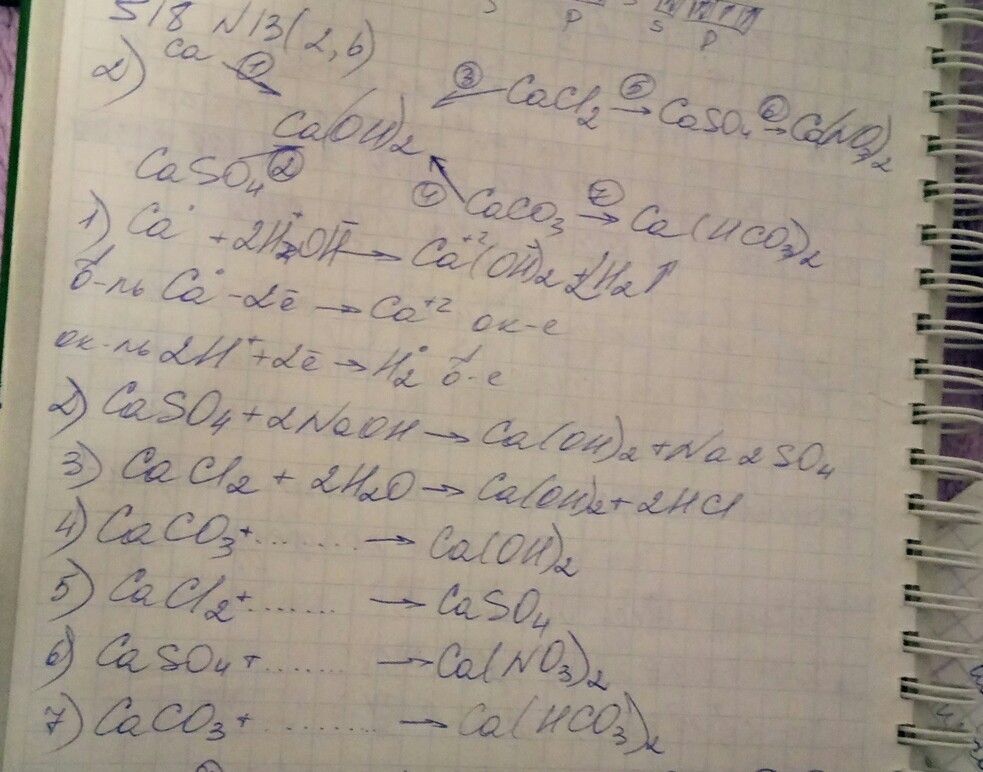 518 N13(2,б)
2) Ca ① ③ CaCl₂ ⑤→ CaSO₄ ⑥→ Ca(NO₃)₂
Ca(OH)₂
CaSO₄ ② ④ CaCO₃ ⑦→ Ca(HCO₃)₂
1) Ca° + 2H⁺₂OH⁻ → Ca⁺²(OH)₂ + H₂↑
в-ль Ca° - 2ē → Ca⁺² ок-е
ок-ль 2H⁺ + 2ē → H₂° в-е
2) CaSO₄ + 2NaOH → Ca(OH)₂ + Na2SO₄
3) CaCl₂ + 2H₂O → Ca(OH)₂ + 2HCl
4) CaCO₃ + ........ → Ca(OH)₂
5) CaCl₂ + ....... → CaSO₄
6) CaSO₄ + ....... → Ca(NO₃)₂
7) CaCO₃ + ........ → Ca(HCO₃)₂